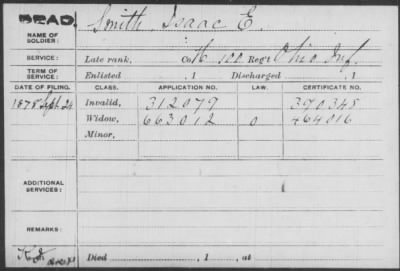 DEAD.
NAME OF SOLDIER: Smith, Isaac E.
SERVICE: Late rank, Co. K, 100 Reg't Ohio Inf.
TERM OF SERVICE: Enlisted , 1 Discharged , 1
DATE OF FILING. CLASS. APPLICATION NO. LAW. CERTIFICATE NO.
1878 Sept. 24 Invalid, 312079 390348
Widow, 663012 0 464016
Minor,
ADDITIONAL SERVICES:
REMARKS:
Died , 1 , at